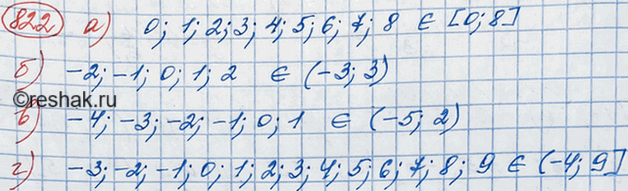 822 а) 0; 1; 2; 3; 4; 5; 6; 7; 8 ∈ [0; 8]
б) -2; -1; 0; 1; 2 ∈ (-3; 3)
©reshak.ru
в) -4; -3; -2; -1; 0; 1 ∈ (-5; 2)
г) -3; -2; -1; 0; 1; 2; 3; 4; 5; 6; 7; 8; 9 ∈ (-4; 9]